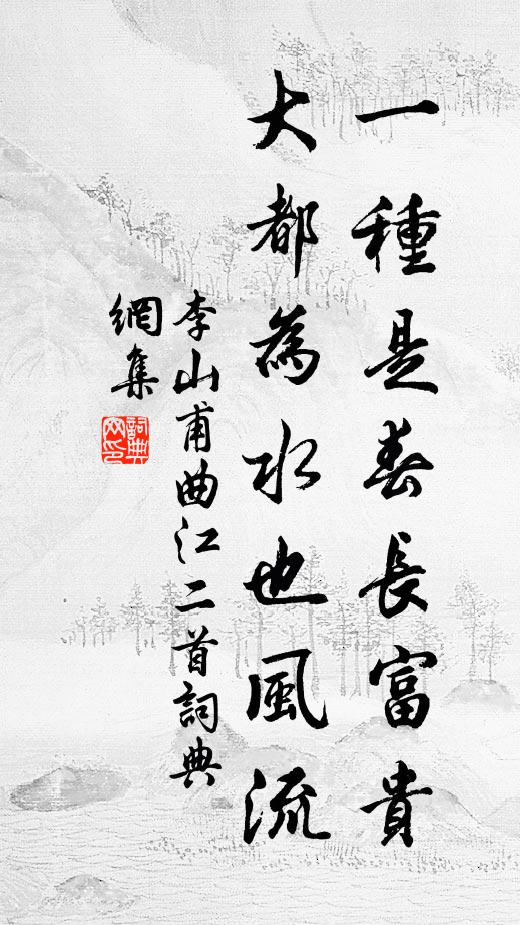 一種是春長富貴
大都為水也風流
李山甫曲江二首詞典
網集
詞典
网印